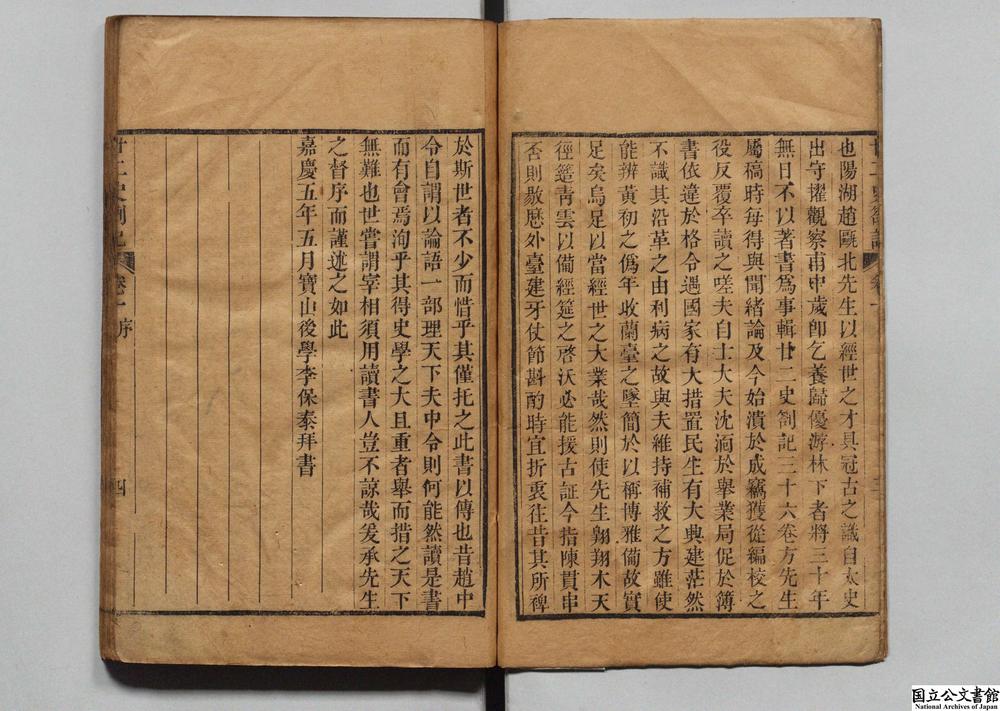 也陽湖趙甌北先生以經世之才具冠古之識自太史
出守擢觀察甫中歲卽乞養歸優游林下者將三十年
無日不以著書爲事輯廿二史劄記三十六卷方先生
屬稿時每得與聞緒論及今始潰於成竊獲從編校之
役反覆卒讀之嗟夫自士大夫沈湎於舉業局促於簿
書依違於格令遇國家有大措置民生有大興建茫然
不識其沿革之由利病之故與夫維持補救之方雖使
能辨黃初之僞年收蘭臺之墜簡於以稱博雅備故實
足矣烏足以當經世之大業哉然則使先生翺翔木天
徑簉青雲以備經筵之啓沃必能援古証今指陳貫串
否則敭歷外臺建牙仗節斟酌時宜折衷往昔其所裨
於斯世者不少而惜乎其僅托之此書以傳也昔趙中
令自謂以論語一部理天下夫中令則何能然讀是書
而有會焉洵乎其得史學之大且重者舉而措之天下
無難也世嘗謂宰相須用讀書人豈不諒哉爰承先生
之督序而謹述之如此
嘉慶五年五月寶山後學李保泰拜書
廿二史劄記 卷一 序 四
国立公文書館
National Archives of Japan